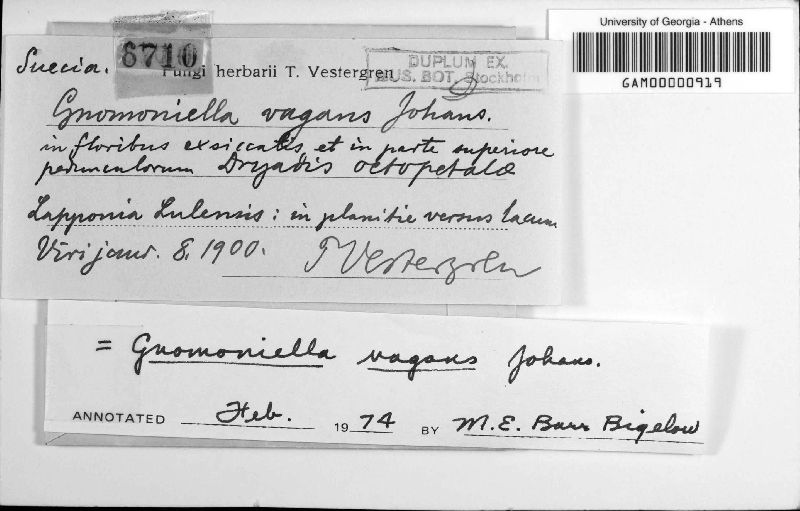 University of Georgia - Athens
GAM00000919
Suecia. 8710
Fungi herbarii T. Vestergren
DUPLUM EX.
MUS. BOT. Stockholm
Gnomoniella vagans Johans.
in floribus exsiccatis et in parte superiore
pedunculorum Dryadis octopetalæ
Lapponia Lulensis: in planitie versus lacum
Virijaur. 8. 1900. T Vestergren
= Gnomoniella vagans Johans.
ANNOTATED Feb. 1974 BY M.E. Barr Bigelow